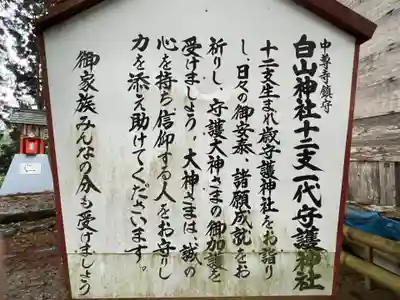 中尊寺鎮守
白山神社十二支一代守護神社
十二支生まれ歳守護神社をお詣り
し、日々の御安泰、諸願成就をお
祈りし、守護大神さまの御加護を
受けましょう、大神さまは、誠の
心を持ち信仰する人をお守りし
力を添え助けてくださいます。
御家族みんなの分も受けましょう